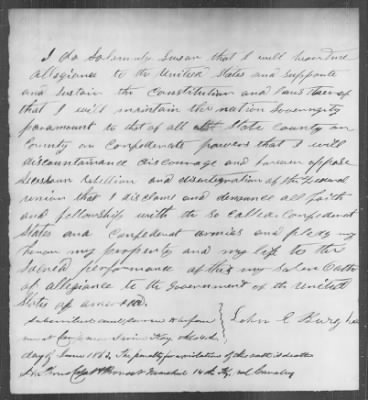 I do Solemnly Swear that I will bear true
allegiance to the United States and supporte
and sustain the Constitution and laws thereof
that I will maintain the nation Soverngity
paramount to that of all State County or
County or Confederate powers that I will
discountanance discourage and forever oppose
secession rebellion and disintegration of the Federal
union that I disclaim and denounce all faith
and fellowship with the so called Confederat
States and Confederat armies and pledg my
honor my property and my life to the
Sacred performance of this my Solem Oathe
of allegiance to the Government of the United
States of
Subscribed and sworn to before
me at Camp near Irvine Ky the
day of June 1862. The penalty for violation of this oath is death
John C Burg
Marshal 14th Ky Cavalry